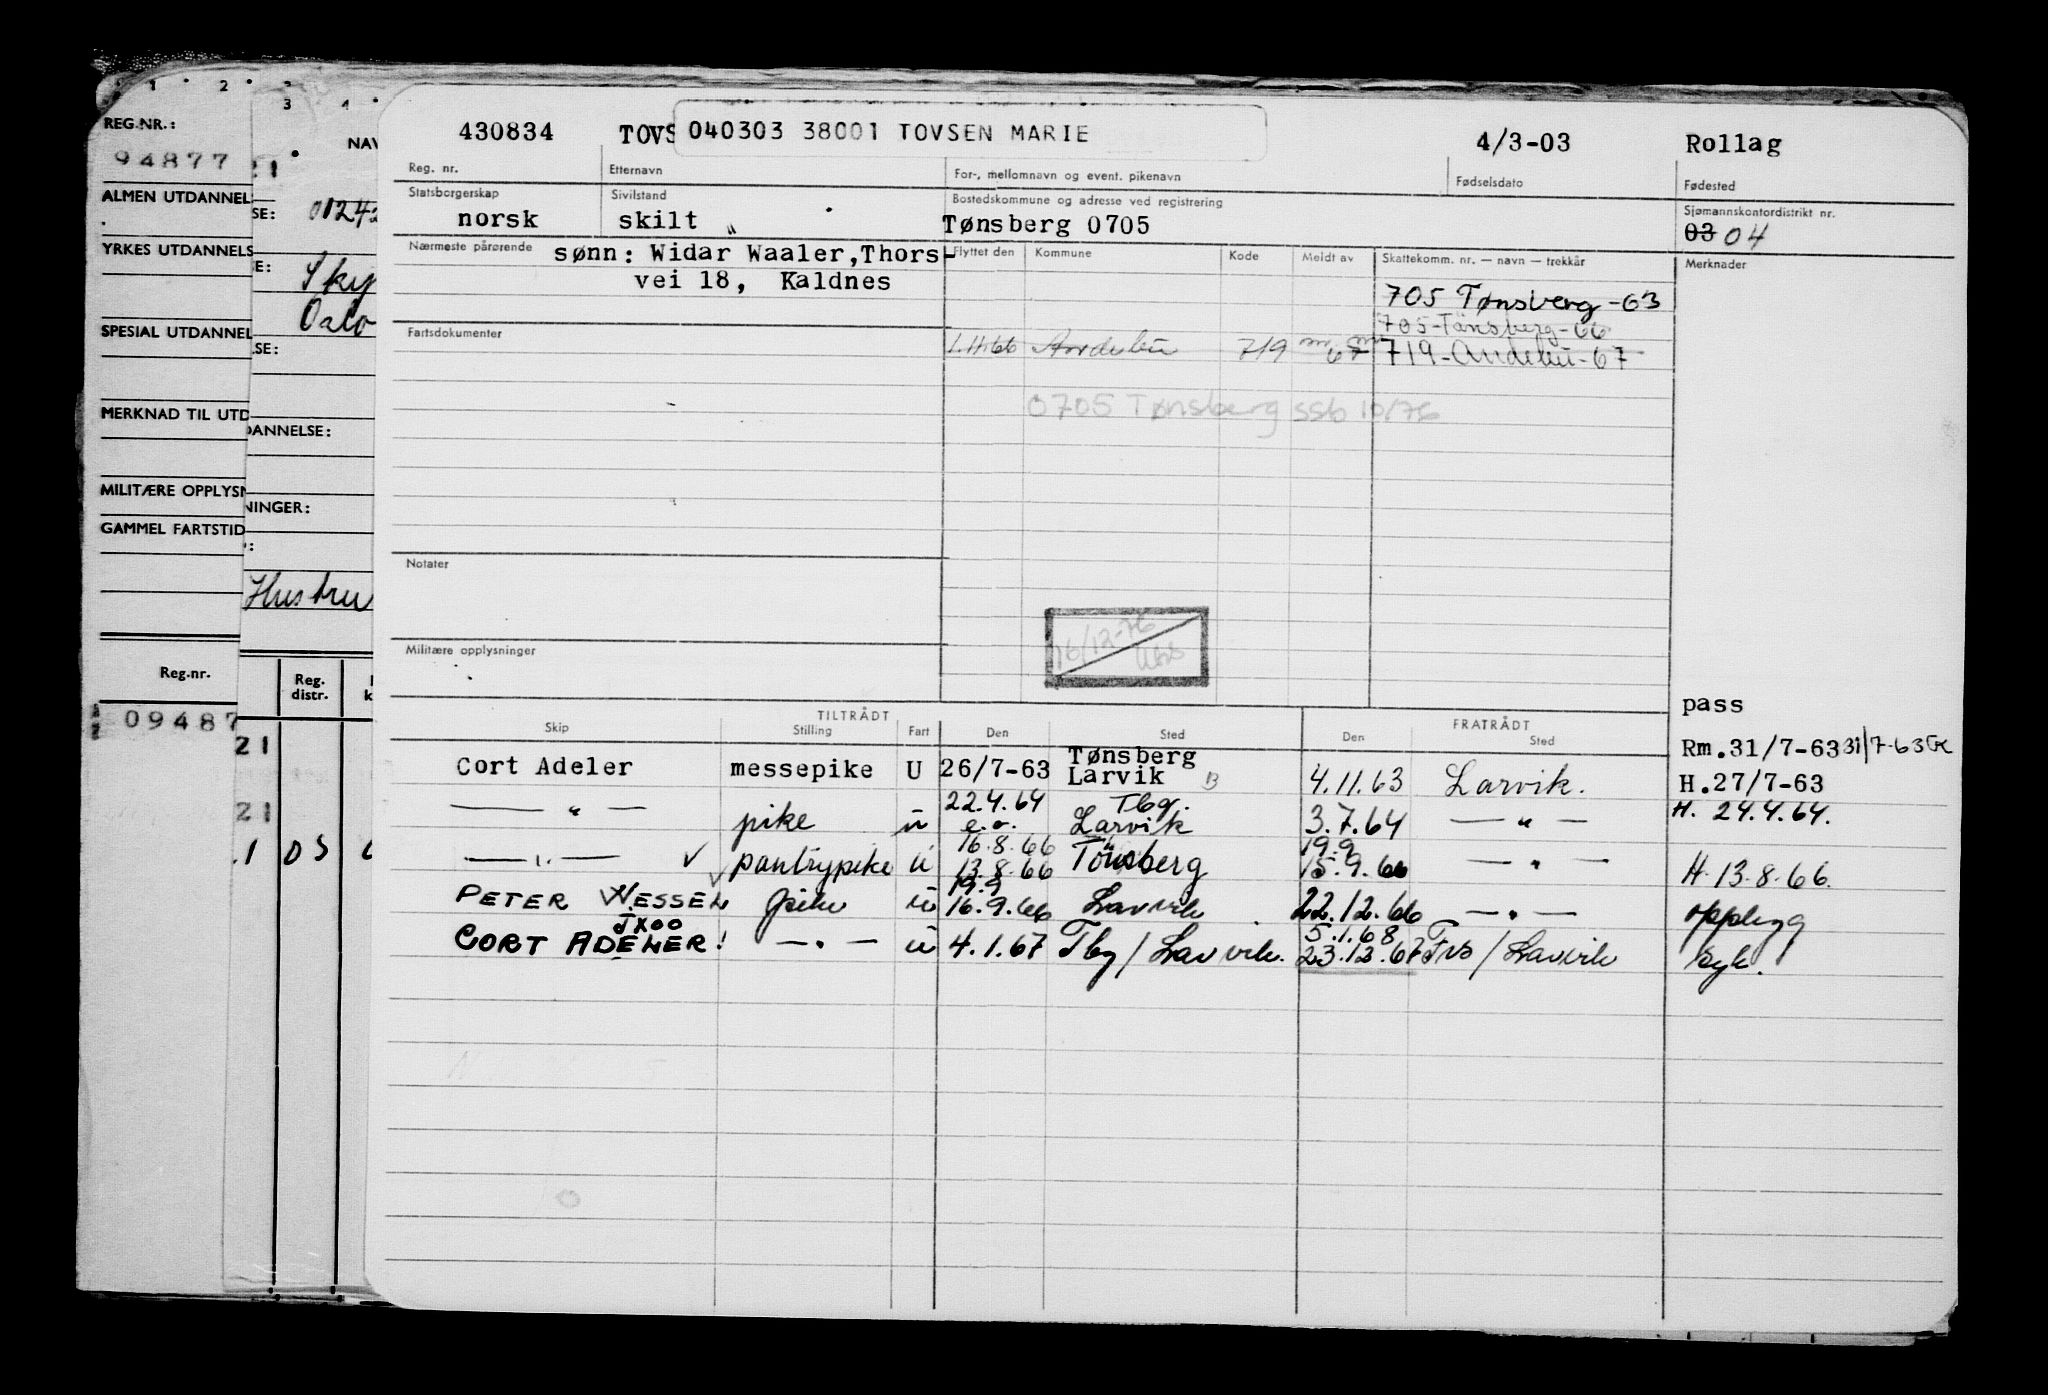 1 2 3
REG.NR.:
94877
ALMEN UTDANNEL
YRKES UTDANNELS
SPESIAL UTDANNEL
MERKNAD TIL UTD
MILITÆRE OPPLYSN
GAMMEL FARTSTID
Reg.nr.
09487
3 4
NAV
21
SE: 01242
E:
Sky
Oslo
LSE:
DANNELSE:
NINGER:
Hustru
Reg. distr.
21
21
.1 03
430834 TOVS 040303 38001 TOVSEN MARIE 4/3-03 Rollag
Reg. nr. Etternavn For-, mellomnavn og event. pikenavn Fødselsdato Fødested
Statsborgerskap Sivilstand Bostedskommune og adresse ved registrering Sjømannskontordistrikt nr.
norsk skilt " Tønsberg 0705 03 04
Nærmeste pårørende sønn: Widar Waaler,Thors-
vei 18, Kaldnes
Flyttet den Kommune Kode Meldt av Skattekomm. nr. — navn — trekkår Merknader
705 Tønsberg -63
705-Tänsberg-66
1.11.66 Andebu 719 67 719-Andebu-67
Fartsdokumenter
0705 Tønsberg ssb 10/76
Notater
16/12-76
Militære opplysninger
pass
TILTRÅDT FRATRÅDT
Skip Stilling Fart Den Sted Den Sted
Rm.31/7-63 31/7-63
Cort Adeler messepike U 26/7-63 Tønsberg Larvik B 4.11.63 Larvik. H.27/7-63
— " — pike u 22.4.64 e.o. Tbg. Larvik 3.7.64 — " — H. 24.4.64.
— " — ✓ pantrypike ü 16.8.66 13.8.66 Tönsberg 19.9 15.9.66 — " — H.13.8.66.
PETER WESSEL pike ü 19.9 16.9.66 Larvik 22.12.66 — " — opplegg
JXOO
CORT ADELER! — " — ü 4.1.67 Tbg/Larvik. 5.1.68 23.12.67 Tvs/Larvik syk.